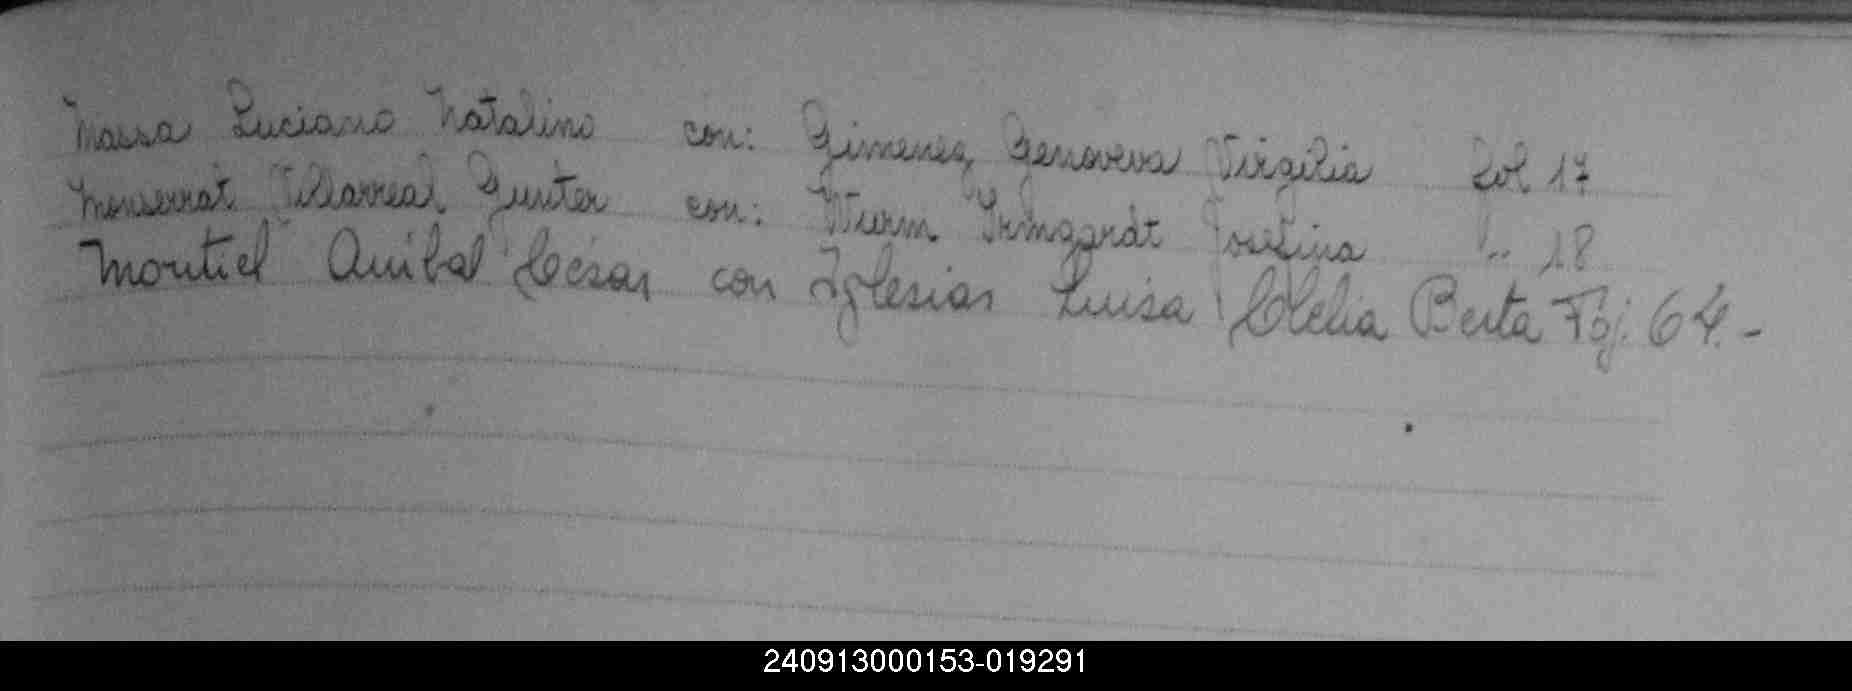 Massa Luciano Natalino con: Gimenez Genoveva Virgilia Fol 17
Monserrat Villarreal Gunter con: Wurm Irmgardt Josefina " .. 18
Montiel Anibal César con Iglesias Luisa Clelia Berta Foj. 64.-
240913000153-019291